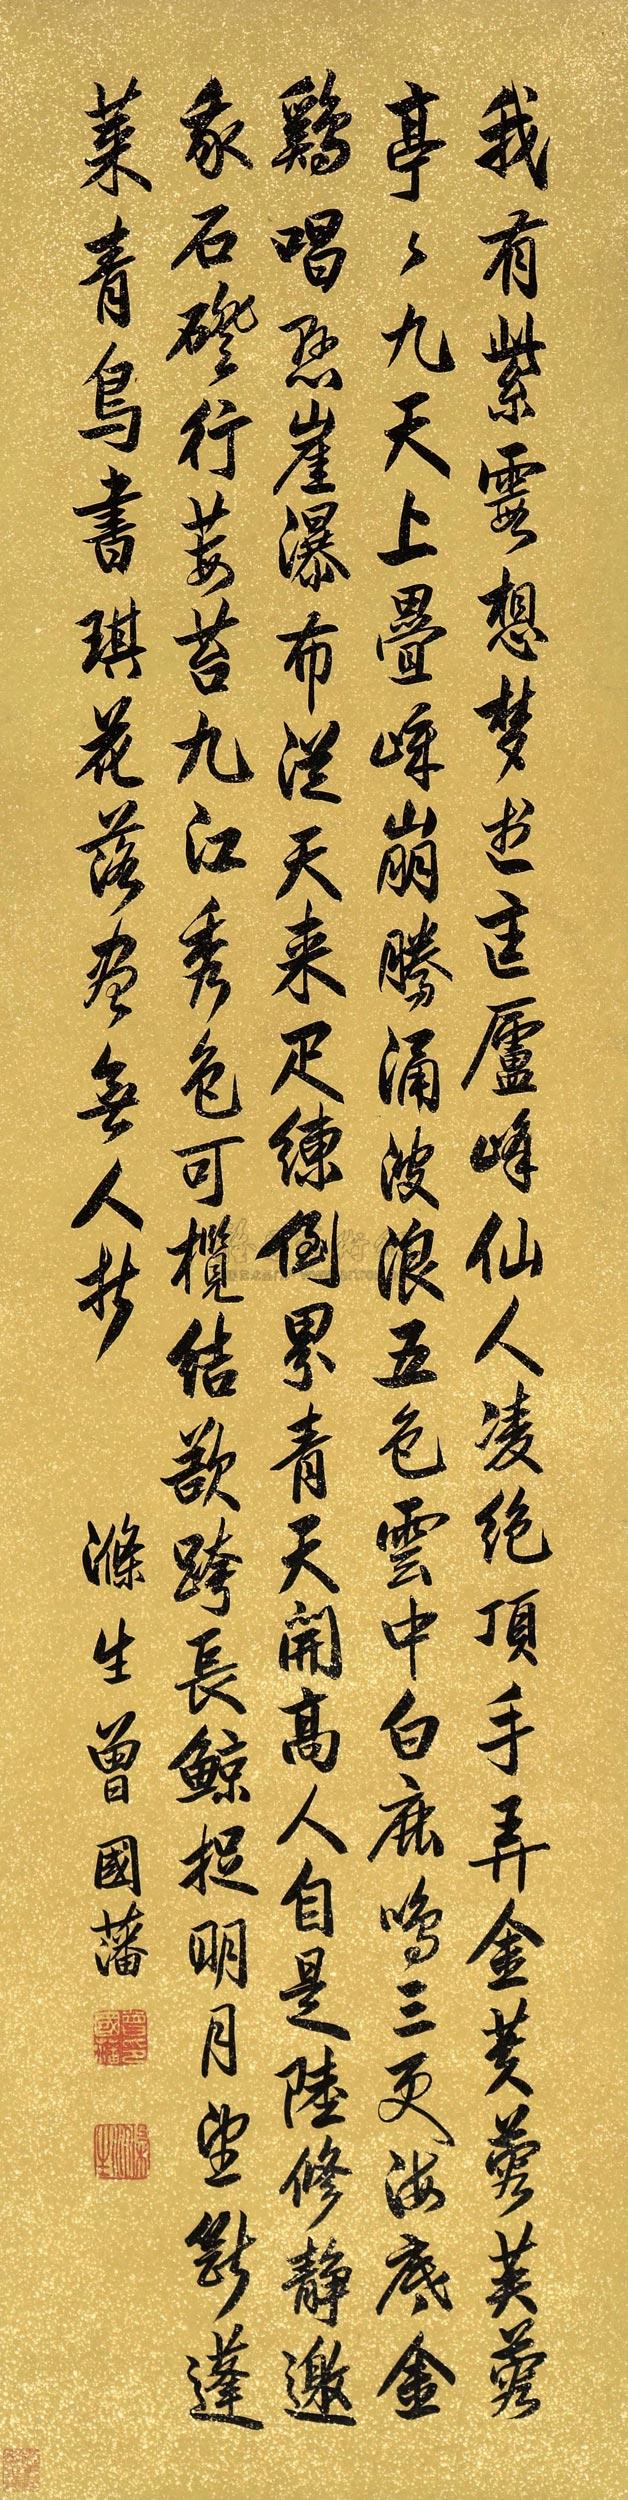 我有紫霞想梦想匡廬峰仙人凌绝頂手弄金芙蓉芙蓉
亭々九天上疊嶂崩騰涌波浪五色雲中白鹿鳴三更海底金
鷄唱懸崖瀑布從天来疋練倒界青天開高人自是陸修静邀
我石磴行莓苔九江秀色可攬結欲跨長鲸捉明月望斷蓬
莱青鸟書琪花落尽無人折
滌生曾國藩